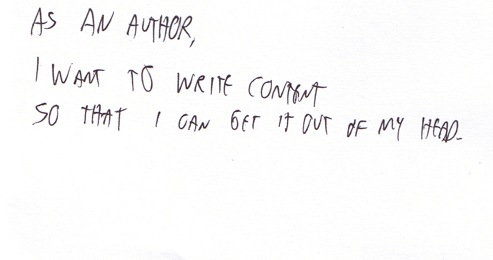 AS AN AUTHOR,
I WANT TO WRITE CONTENT
SO THAT I CAN GET IT OUT OF MY HEAD.